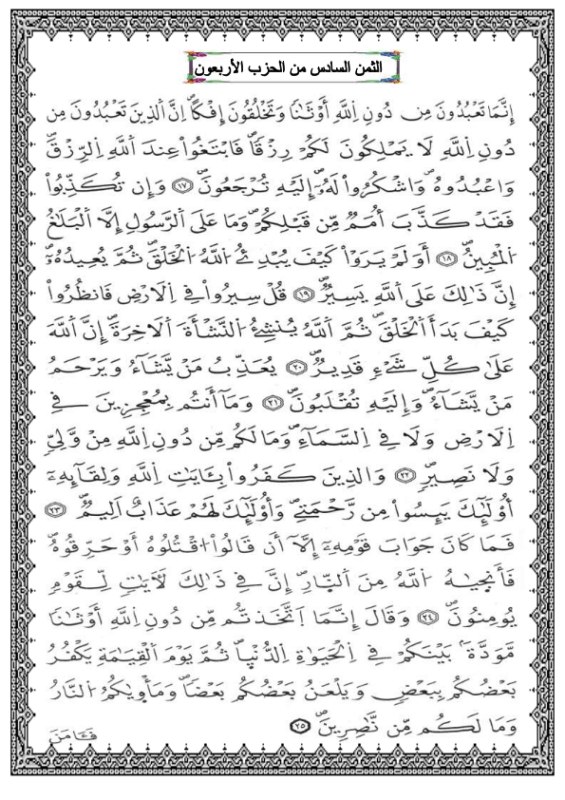 الثمن السادس من الحزب الأربعون
إِنَّمَا تَعْبُدُونَ مِن دُونِ اِللَّهِ أَوْثَٰناٗ وَتَخْلُقُونَ إِفْكاًۖ اِنَّ اَلذِينَ تَعْبُدُونَ مِن
دُونِ اِللَّهِ لَا يَمْلِكُونَ لَكُمْ رِزْقاٗ فَابْتَغُواْ عِندَ اَللَّهِ اِلرِّزْقَ
وَاعْبُدُوهُ وَاشْكُرُواْ لَهُۥٓ إِلَيْهِ تُرْجَعُونَۖ ١٧ وَإِن تُكَذِّبُواْ
فَقَدْ كَذَّبَ أُمَمٞ مِّن قَبْلِكُمْ وَمَا عَلَى اَلرَّسُولِ إِلَّا اَلْبَلَٰغُ
اُلْمُبِينُۖ ١٨ أَوَلَمْ يَرَوْاْ كَيْفَ يُبْدِئُ اُللَّهُ اُلْخَلْقَ ثُمَّ يُعِيدُهُۥٓ
إِنَّ ذَٰلِكَ عَلَى اَللَّهِ يَسِيرٞۖ ١٩ قُلْ سِيرُواْ فِي اِلَارْضِ فَانظُرُواْ
كَيْفَ بَدَأَ اَلْخَلْقَ ثُمَّ اَللَّهُ يُنشِئُ اُلنَّشْأَةَ اَلَاخِرَةَۖ إِنَّ اَللَّهَ
عَلَىٰ كُلِّ شَےْءٖ قَدِيرٞۖ ٢٠ يُعَذِّبُ مَنْ يَّشَآءُ وَيَرْحَمُ
مَنْ يَّشَآءُ وَإِلَيْهِ تُقْلَبُونَۖ ٢١ وَمَآ أَنتُم بِمُعْجِزِينَ فِي
اِلَارْضِ وَلَا فِي اِلسَّمَآءِۖ وَمَا لَكُم مِّن دُونِ اِللَّهِ مِنْ وَّلِيّٖ
وَلَا نَصِيرٖۖ ٢٢ وَالذِينَ كَفَرُواْ بِـَٔايَٰتِ اِللَّهِ وَلِقَآئِهِۦٓ
أُوْلَٰٓئِكَ يَئِسُواْ مِن رَّحْمَتِے وَأُوْلَٰٓئِكَ لَهُمْ عَذَابٌ اَلِيمٞۖ ٢٣
فَمَا كَانَ جَوَابَ قَوْمِهِۦٓ إِلَّآ أَن قَالُواْ اُقْتُلُوهُ أَوْ حَرِّقُوهُ
فَأَنجَيٰهُ اُللَّهُ مِنَ اَلنَّارِۖ إِنَّ فِي ذَٰلِكَ لَأٓيَٰتٖ لِّقَوْمٖ
يُومِنُونَۖ ٢٤ وَقَالَ إِنَّمَا اَتَّخَذتُّم مِّن دُونِ اِللَّهِ أَوْثَٰناٗ
مَّوَدَّةَۢ بَيْنَكُمْ فِي اِلْحَيَوٰةِ اِلدُّنْيَاۖ ثُمَّ يَوْمَ اَلْقِيَٰمَةِ يَكْفُرُ
بَعْضُكُم بِبَعْضٖ وَيَلْعَنُ بَعْضُكُم بَعْضاٗ وَمَأْوَيٰكُمُ اُلنَّارُ
وَمَا لَكُم مِّن نَّٰصِرِينَۖ ٢٥ فَـَٔامَنَ